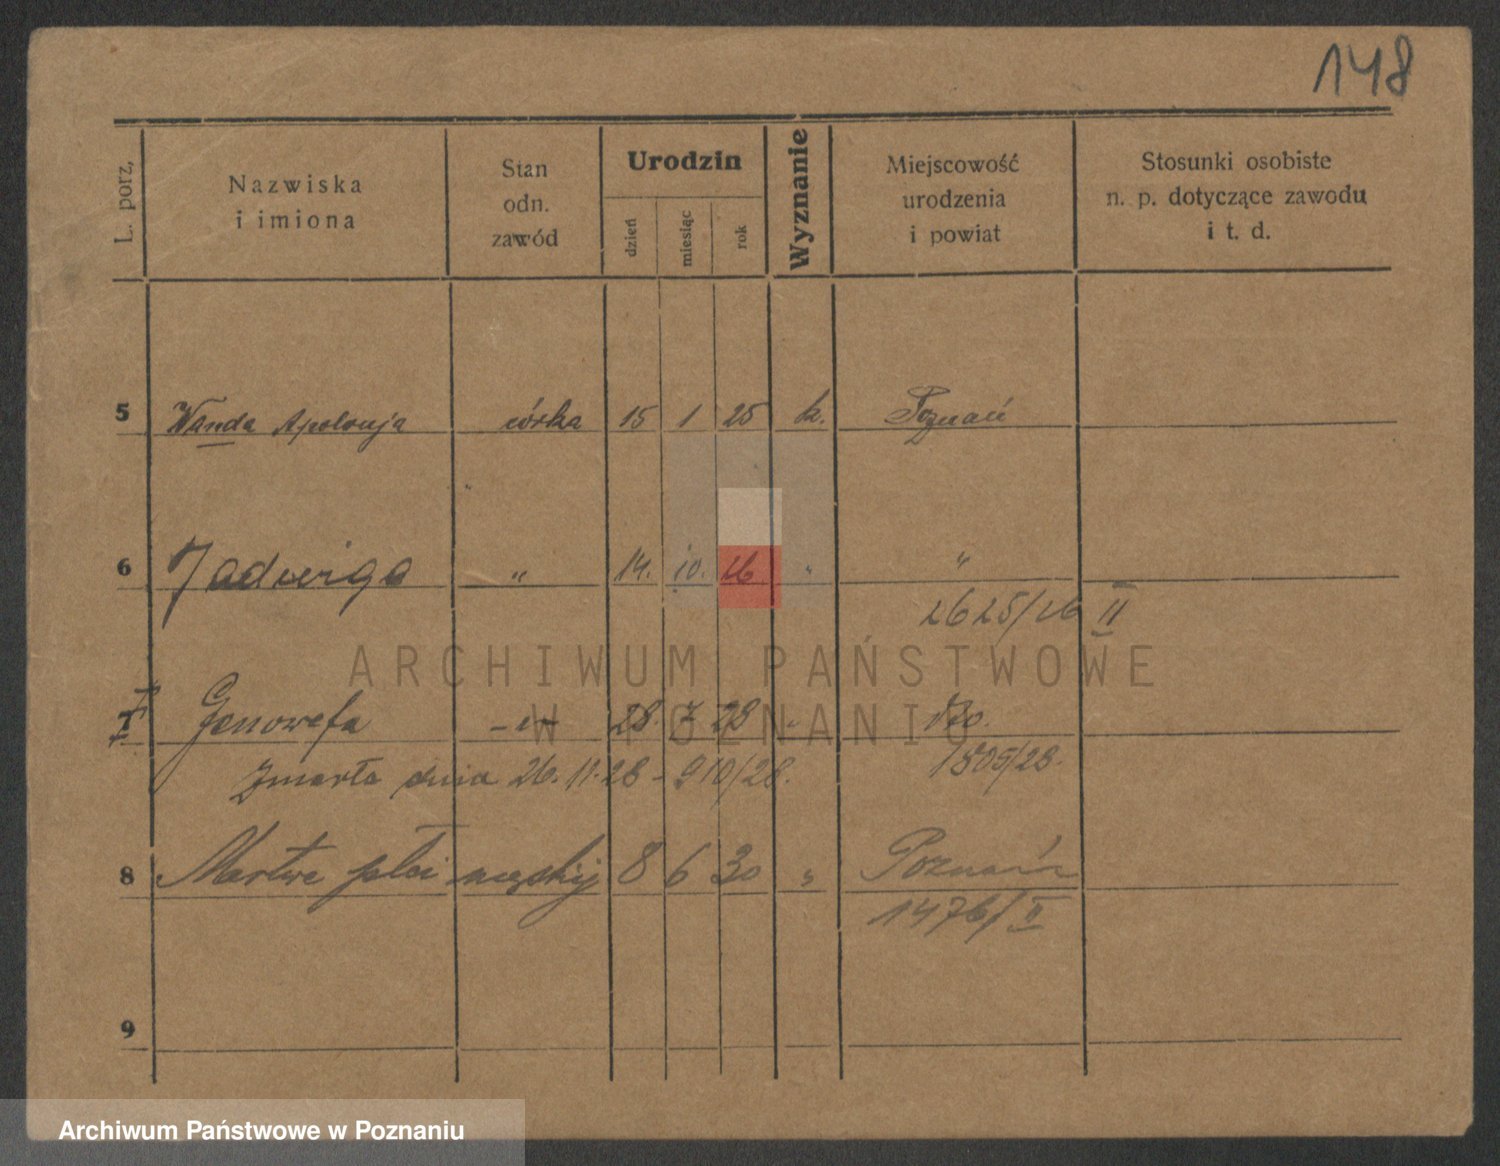 148
L. porz,
Nazwiska
i imiona
Stan
odn.
zawód
Urodzin
dzień
miesiąc
rok
Wyznanie
Miejscowość
urodzenia
i powiat
Stosunki osobiste
n. p. dotyczące zawodu
i t. d.
5 Wanda Apolonja córka 15 1 25 k. Poznań
6 Jadwiga " 14. 10. 26 " "
2625/26 II
7 Genowefa -"- 28. 7 28 "
1805/28.
Zmarła dnia 26.11.28 - 910/28.
8 Martwe płci męskiej 8 6 30 " Poznań
1476/II
9
ARCHIWUM PAŃSTWOWE
W POZNANIU
Archiwum Państwowe w Poznaniu